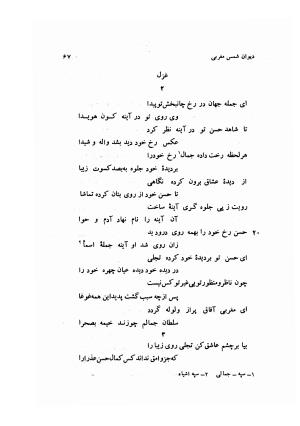 دیوان شمس مغربی
۶۷
غزل
۲
ای جمله جهان در رخ جانبخش تو پیدا
وی روی تو در آینه کون هویدا
تا شاهد حسن تو در آینه نظر کرد
عکس رخ خود دید بشد واله و شیدا
هر لحظه رخت داده جمال۱ رخ خود را
بر دیدهٔ خود جلوه به صد کسوت زیبا
از دیدهٔ عشاق برون کرده نگاهی
تا حسن خود از روی بتان کرده تماشا
رویت ز پی جلوه گری آینهٔ ساخت
آن آینه را نام نهاد آدم و حوا
حسن رخ خود را بهمه روی درو دید
۲۰
زان روی شد او آینه جملهٔ اسما۲
ای حسن تو بر دیدهٔ خود کرده تجلی
در دیده خود دیده عیان چهره خود را
چون ناظر و منظور تویی غیر تو کس نیست
پس از چه سبب گشت پدید این همه غوغا
ای مغربی آفاق پر از ولوله گردد
سلطان جمالم چو زند خیمه بصحرا
۳
بیا بر چشم عاشق کن تجلی روی زیبا را
که جز وامق نداند کس کمال حسن عذرا را
۱ــ سپه ــ جمالی ۲ــ سپه اشیاء